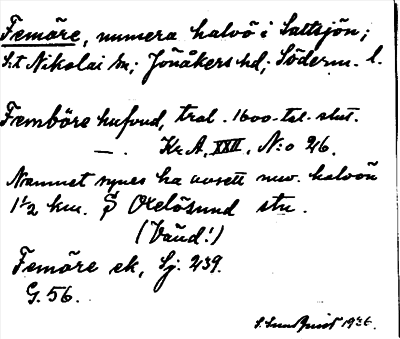 Femöre, numera halvö i Saltsjön;
S:t Nikolai sn; Jönåkers hd; Söderm. l.
Femböre hufvud, trol. 1600-tal. slut.
— . Kr.A, XXII, N:o 26.
Namnet synes ha avsett nuv. halvön
1½ km. S Oxelösund stn.
(Vänd!)
Femöre ek, Sj: 239.
G. 56.
S. Sundquist 1926.